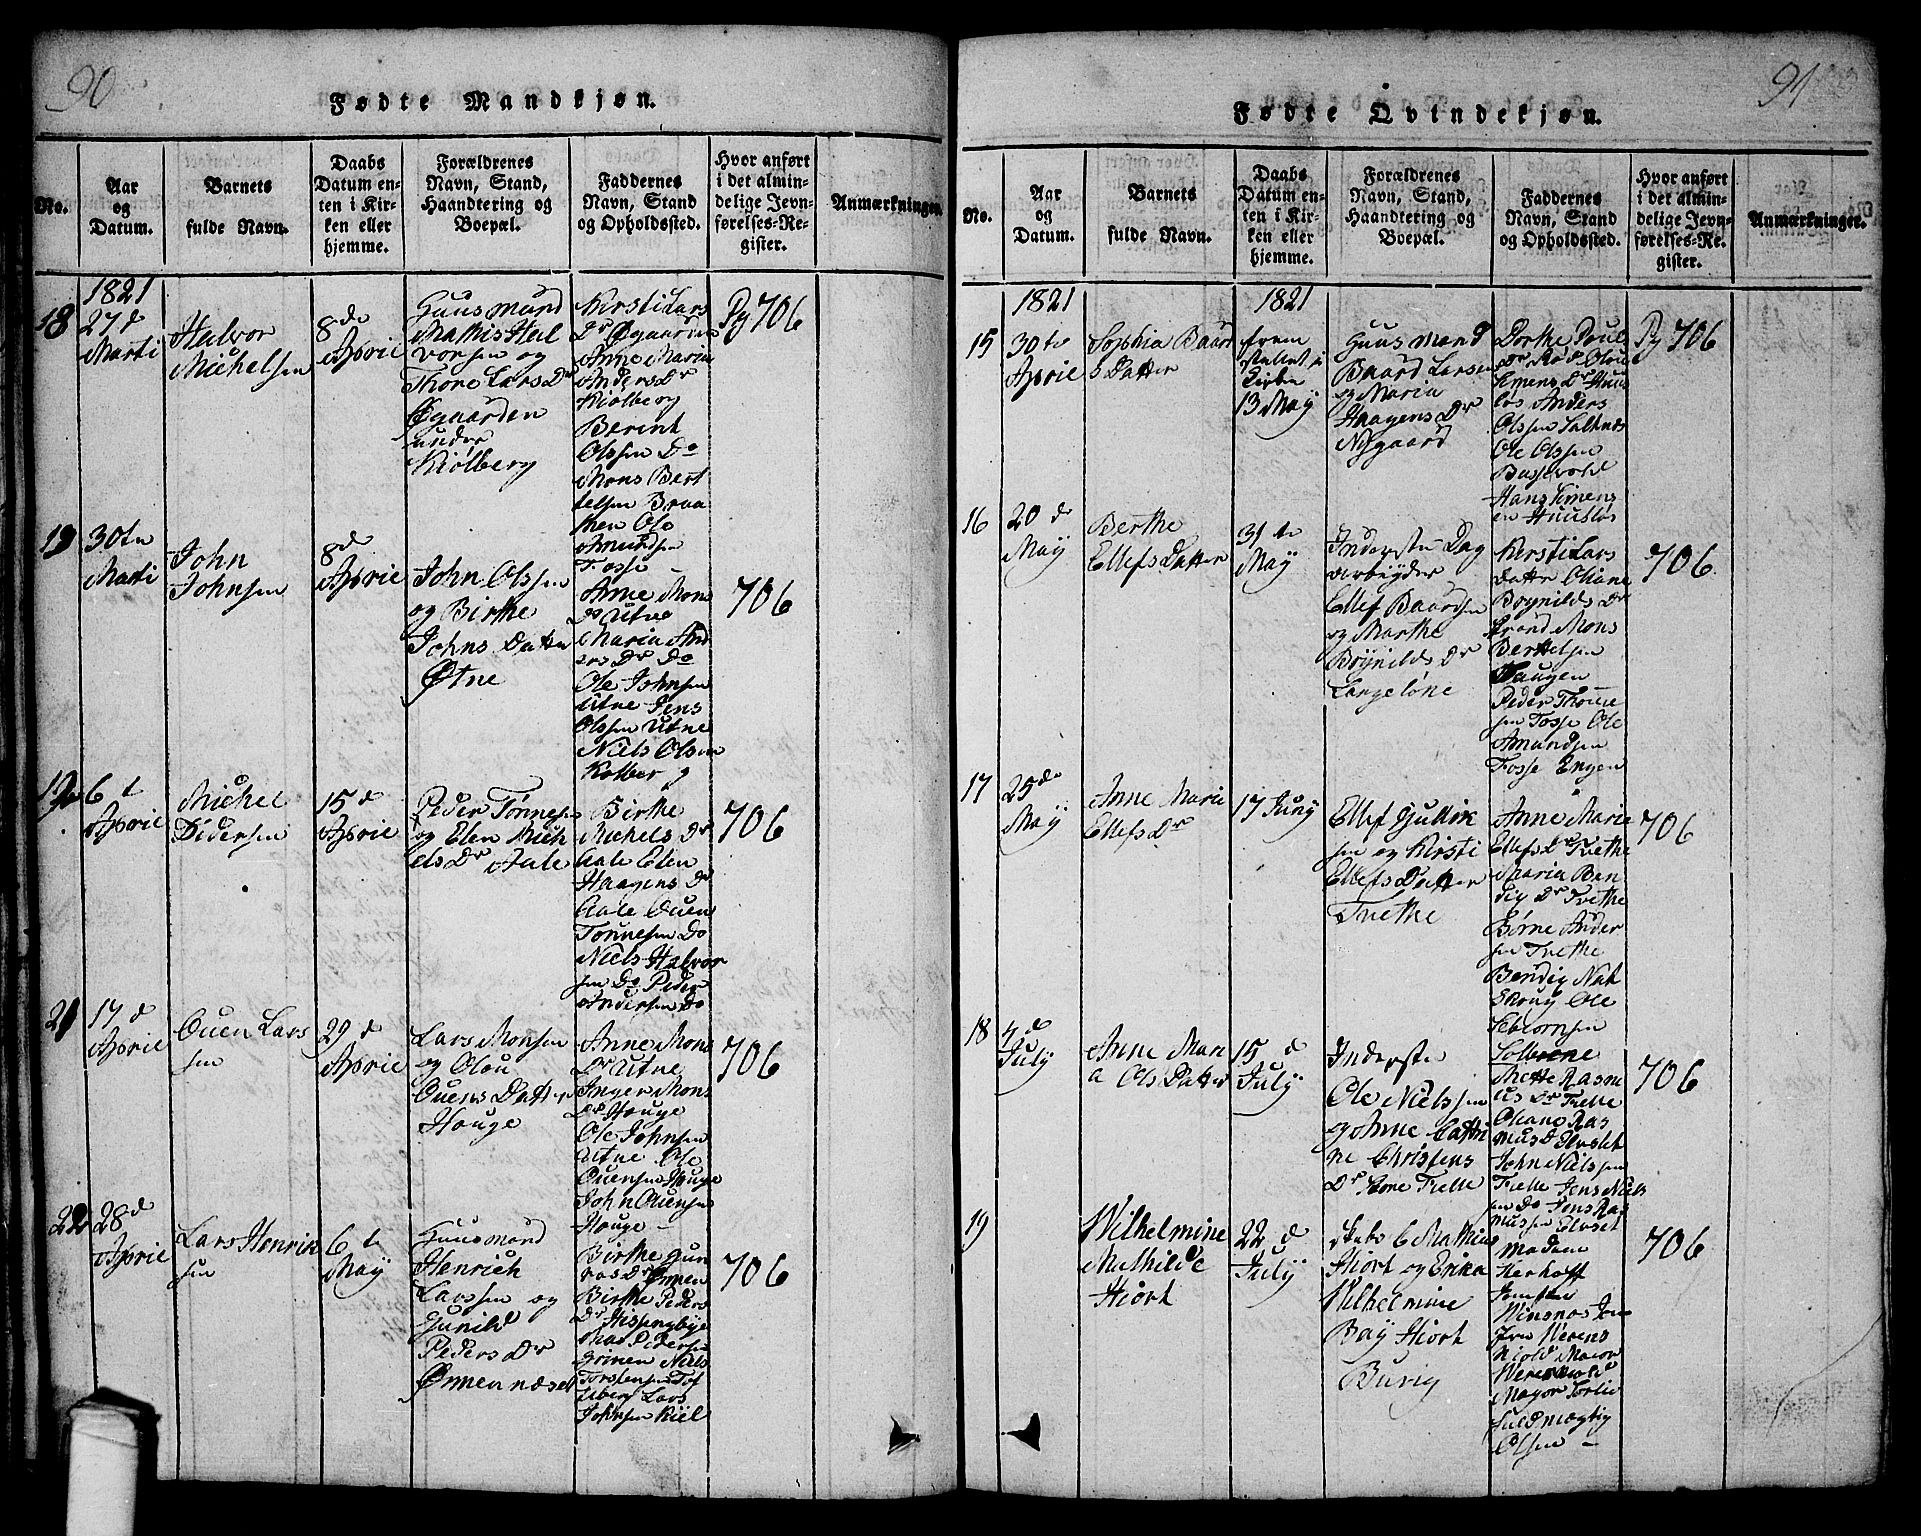 90
Fødte Mandkjøn.
No.
Aar
og
Datum.
Barnets
fulde Navn.
Daabs
Datum en-
ten i Kir-
ken eller
hjemme.
Forældrenes
Navn, Stand,
Haandtering og
Boepæl.
Faddernes
Navn, Stand
og Opholdssted.
Hvor anført
i det almin-
delige Jevn-
førelses-Re-
gister.
Anmærkninger.
1821
18
27 d
Marti
Halvor
Michelsen
8de
Aprie
Huusmand
Mathis Hal
vorsen og
Thore Lars Dr
Øgaarden
under
Kiølberg
Kirsti Lars
Dr Øgaarden
Anne Maria
Anders Dr
Kiølberg
Berint
Olssen Do
Mons Bert
telsen Braa
then Ole
Amundsen
Fosse
Pg 706
19
30te
Marti
John
Johnsen
8de
Aprie
John Olssen
og Birthe
Johns Datter
Øtne
Anne Mons
Dr Utne
Maria And
ers Dr Do
Ole Johnsen
Utne Jens
Olssen Utne
Niels Olsen
Kolberg
706
6 t
Aprie
Michel
Pedersen
15 d
Aprie
Peder Tønnesen
og Elen Mich
els Dr Aale
Birthe
Michels Dr
Aale Elen
Haagens Dr
Aale Ouen
Tønnesen Do
Niels Halvor
sen Do Peder
Andersen Do
706
21
17 d
Aprie
Ouen Lars
sen
29 d
Aprie
Lars Monsen
og Olou
Ouens Datter
Houge
Anne Mons
Dr Utne
Inger Mons
Dr Houge
Ole Johnsen
Utne Ole
Ouensen Houge
John Ouensen
Houge
706
22
28d
Aprie
Lars Henrik
sen
6 t
Maÿ
Huusmand
Henrich
Larssen og
Gunild
Peders Dr
Ønnennæset
Birthe Gun
ras Dr Ønnen
Birthe Peders
Dr Hissingbye
Mad P Pedersen
Grinen Niels
Torstensen Tof
teberg Lars
Johnsen Kiel
706
91
Fødte Qvindekjøn.
No.
Aar
og
Datum.
Barnets
fulde Navn.
Daabs
Datum en-
ten i Kir-
ken eller
hjemme.
Forældrenes
Navn, Stand,
Haandtering og
Boepæl.
Faddernes
Navn, Stand
og Opholdssted.
Hvor anført
i det almin-
delige Jevn-
førelses-Re-
gister.
Anmærkninger.
1821
1821
15
30te
Aprie
Sophia Baard
s Datter
frem
stillet i
Kirken
13 Maÿ
Huusmand
Baard Larsen
og Maria
Haagens Dr
Nygaard
Dorthe Poul
Dr Rød Olou
Simens Dr Huus
løs Anders
Olssen Saltnæs
Ole Olssen
Basservold
Hans Simens
en Huusløs
Pg 706
16
20 de
Maÿ
Berthe
Ellefs Datter
31 te
Maÿ
Inderste Dag
arbeyder
Ellef Baardsen
og Marthe
Brÿnilds Dr
Langeløne
Kirsti Lars
datter Oliane
Brynilds Dr
Strand Mons
Berthelsen
Haugen
Peder Thorse
sen Fosse Ole
Amundsen
Fosse Engen
706
17
25de
Maÿ
Anne Marie
Ellefs Dr
17 Juny
Ellef Gulbrik
sen og Kirsti
Ellefs Datter
Tvethe
Anne Marie
Ellefs Dr Tvethe
Maria Ben
dig Dr Tvethe
Børne Ander
sen Tvethe
Bendig Nat
skoug Ole
Sebiornsen
Solbrene
706
18
4 d
July
Anne Mari
a Ols Datter
15 d
July
Inderste
Ole Nielssen
og Anne Cathri
ne Christens
Dr Stene Trette
Mette Rasmu
us Dr Trette
Oliane Ras
mus D Elvstet
John Nielssen
Trette Jens Niels
sen Do Jens Ras
mussen Elvset
706
19
Wilhelmine
Mathilde
Hiort
22 d
July
Skibs C Mathias
Hiort og Erika
Wilhelmine
Baÿ Hiort
Burig
Madam
Herhoff
Jomfru
Winsnes Jom
fru Werens
kiold Maior
Werenskiold
Mayor Sørlie
Fuldmægtig
Olsen
706